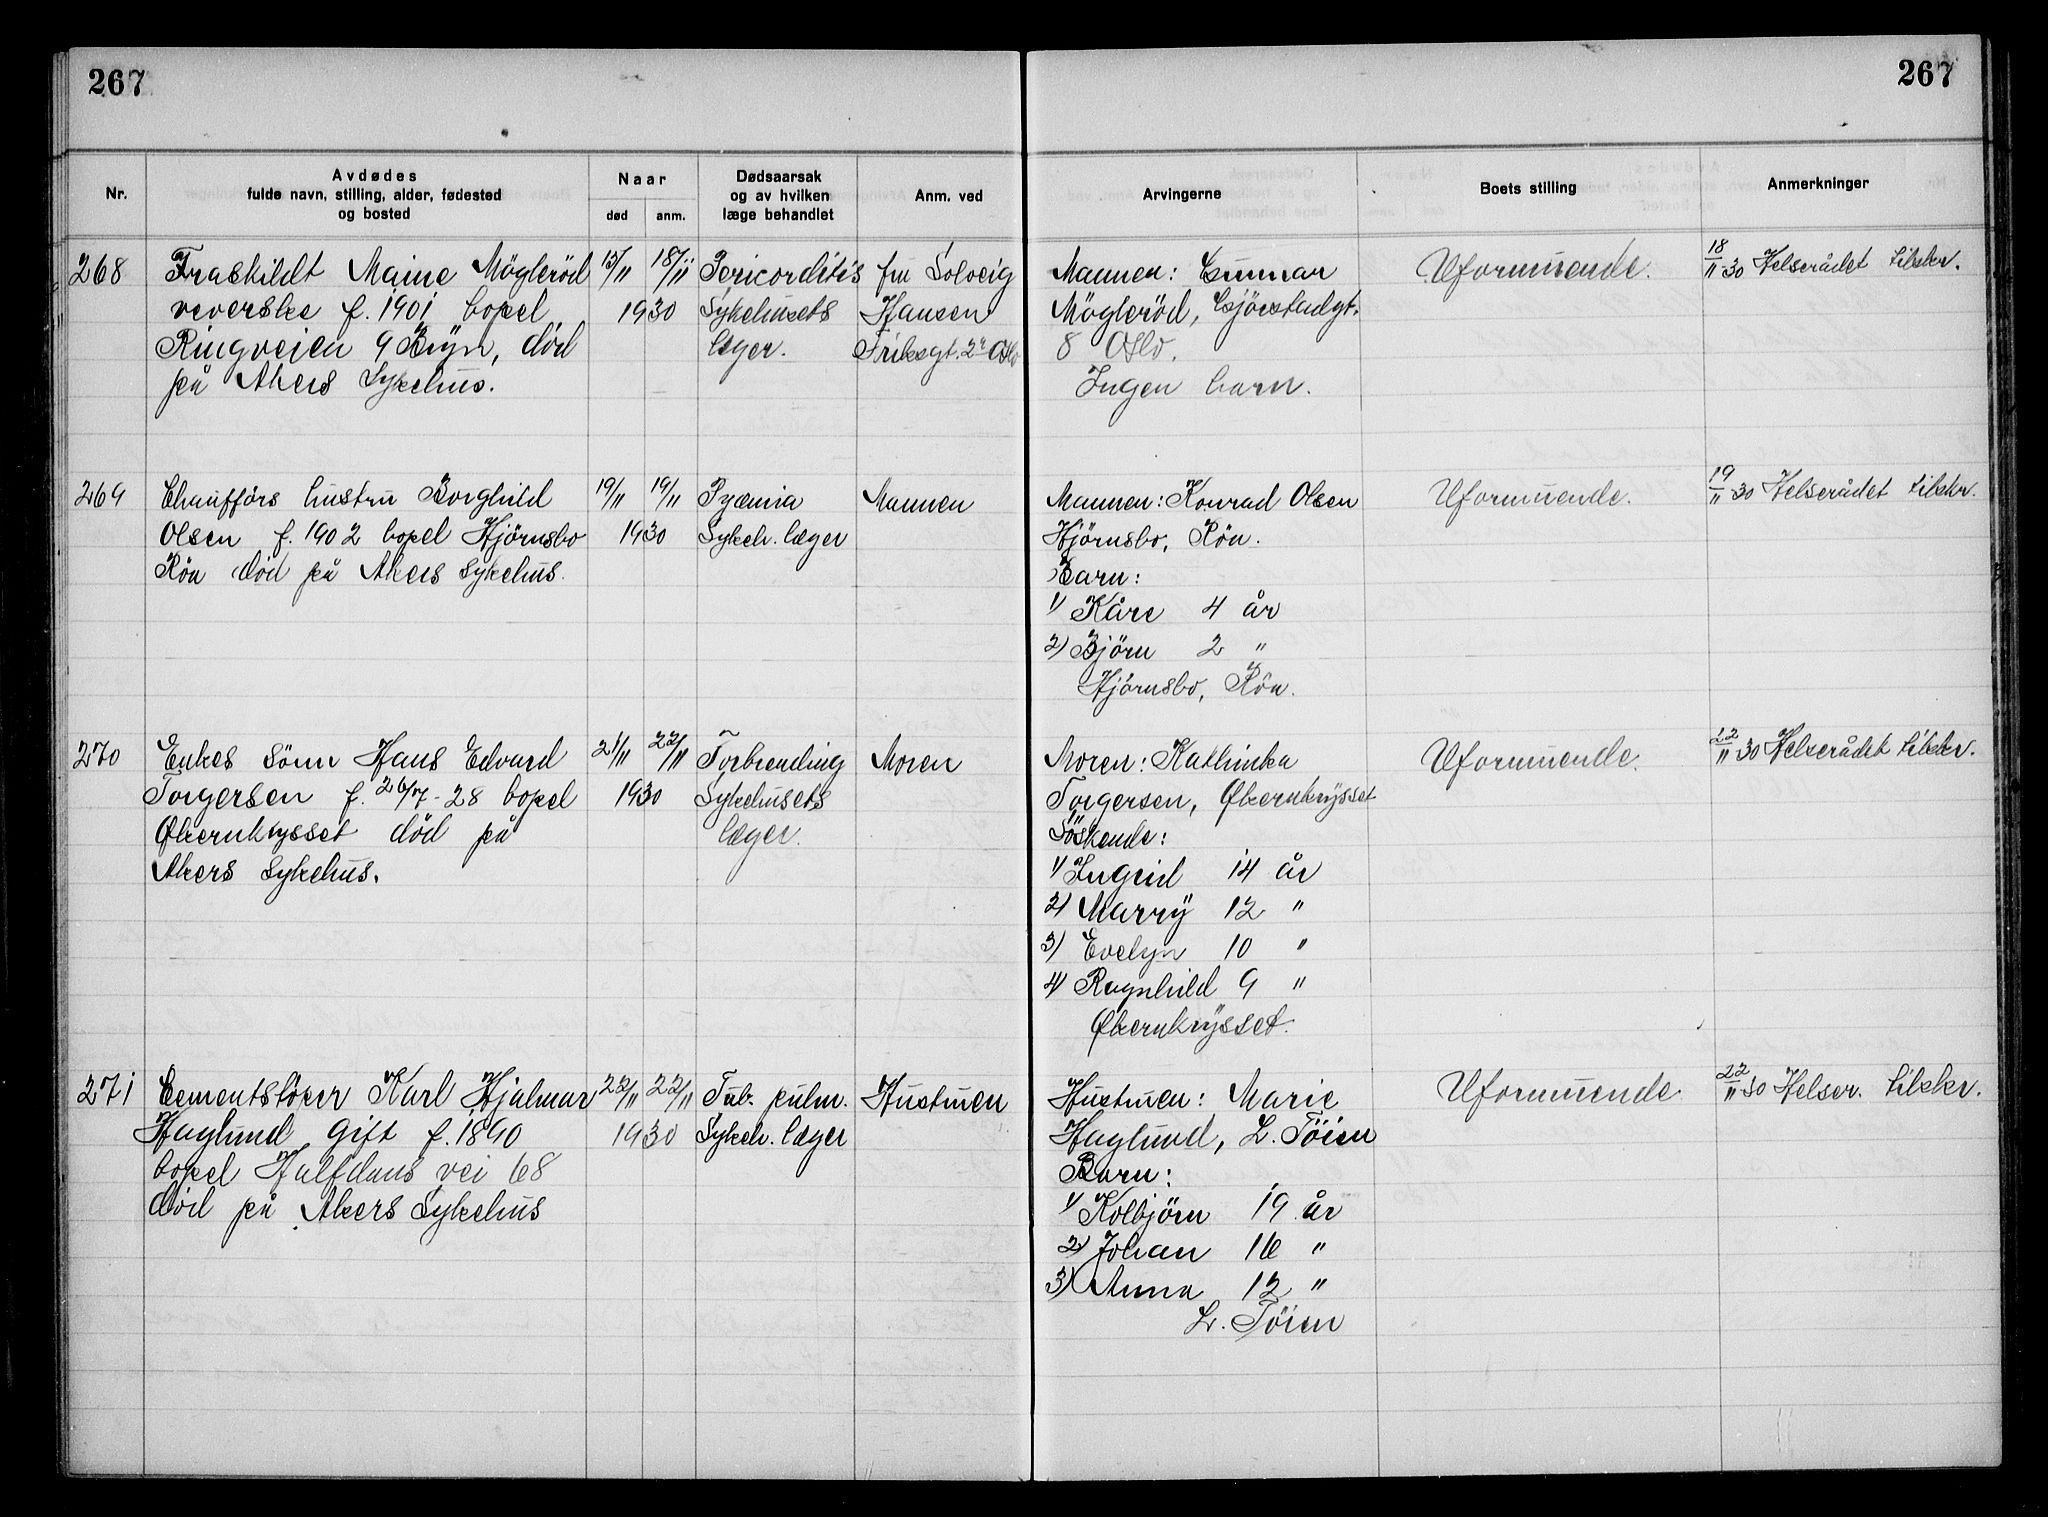 267
267
Nr.
Avdødes
fulde navn, stilling, alder, fødested
og bosted
Naar
død
anm.
Dødsaarsak
og av hvilken
læge behandlet
Anm. ved
Arvingerne
Boets stilling
Anmerkninger
268
Fraskildt Maine Mögleröd
veverske f. 1901 bopel
Ringveien 9 Bryn, död
på Akers Sykehus.
15/11 18/11
1930
Pericorditis
Sykehusets
læger.
fru Solveig
Hansen
Oslo
Mannen: Gunnar
Mögleröd,
8 Oslo.
Ingen barn.
Uformuende.
18/11 30 Helserådet tilskr.
269
Chaufförs hustru Borghild
Olsen f. 1902 bopel Hjörnsbo
Röa död på Akers sykehus.
19/11 19/11
1930
Pyæmia
Sykeh. læger
Mannen
Mannen: Konrad Olsen
Hjörnsbo, Röa.
Barn:
1) Kåre 4 år
2) Björn 2 "
Hjörnsbo, Röa.
Uformuende.
19/11 30 Helserådet tilskr.
270
Enkes sönn Hans Edvard
Torgersen f. 26/7-28 bopel
Økernkrysset död på
Akers sykehus.
21/11 22/11
1930
Forbrending
Sykehusets
læger.
Moren
Moren: Kathinka
Torgersen, Økernkrysset
Söskende:
1) Ingrid 14 år
2) Marry 12 "
3) Evelyn 10 "
4) Ragnhild 9 "
Økernkrysset.
Uformuende.
22/11 30 Helserådet tilskr.
271
Cementstöper Karl Hjalmar
Haglund gift f. 1890
bopel Halfdans vei 68
död på Akers Sykehus
22/11 22/11
1930
Tub. pulm.
Sykeh. læger
Hustruen
Hustruen: Marie
Haglund, L. Töien
Barn:
1) Kolbjörn 19 år
2) Johan 16 "
3) Anna 12 "
L. Töien
Uformuende.
22/11 30 Helser. tilskr.